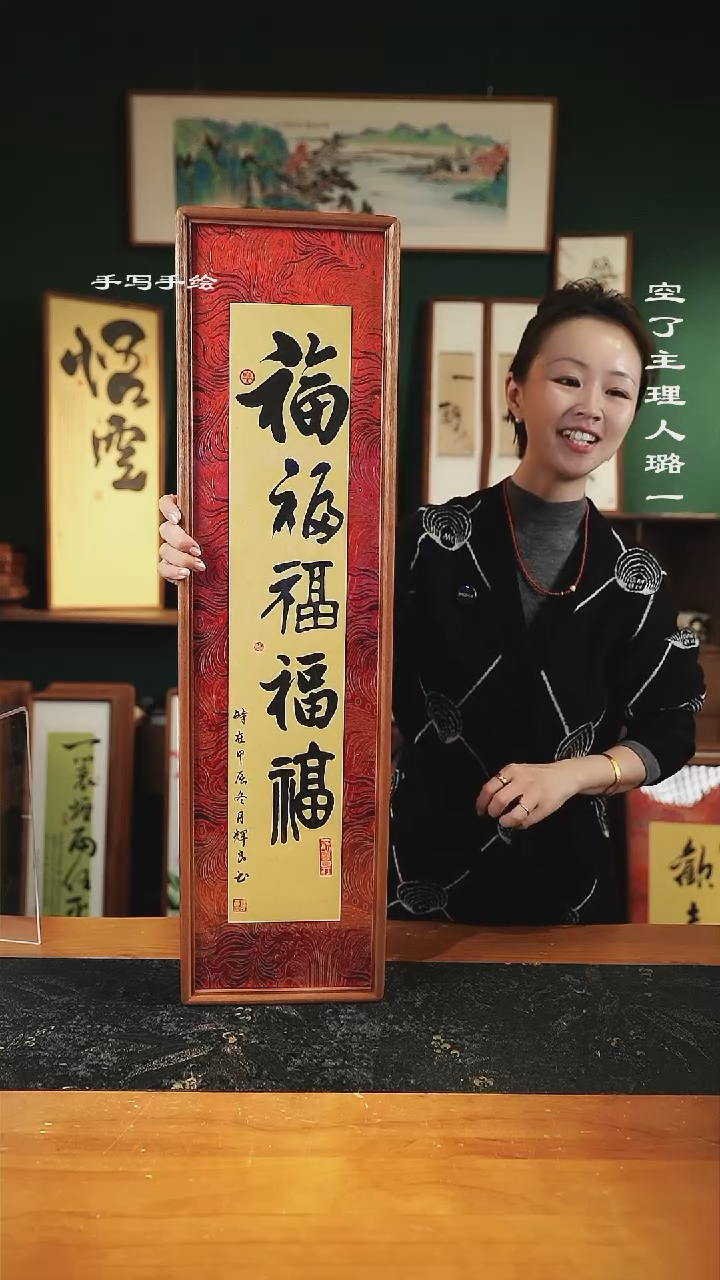 手写手绘
空了主理人璐一
福福福福福
时在甲辰冬月辉
悟空
一蓑烟雨任平
一
歡